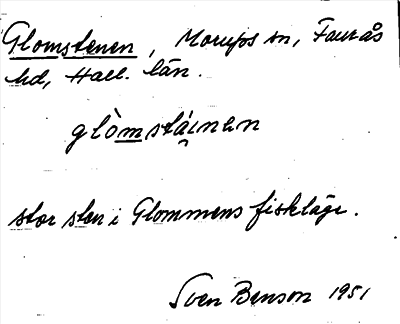 Glomstenen, Morups sn, Faurås
hd, Hall. län.
glòmstáinen
stor sten i Glommens fiskläge.
Sven Benson 1951